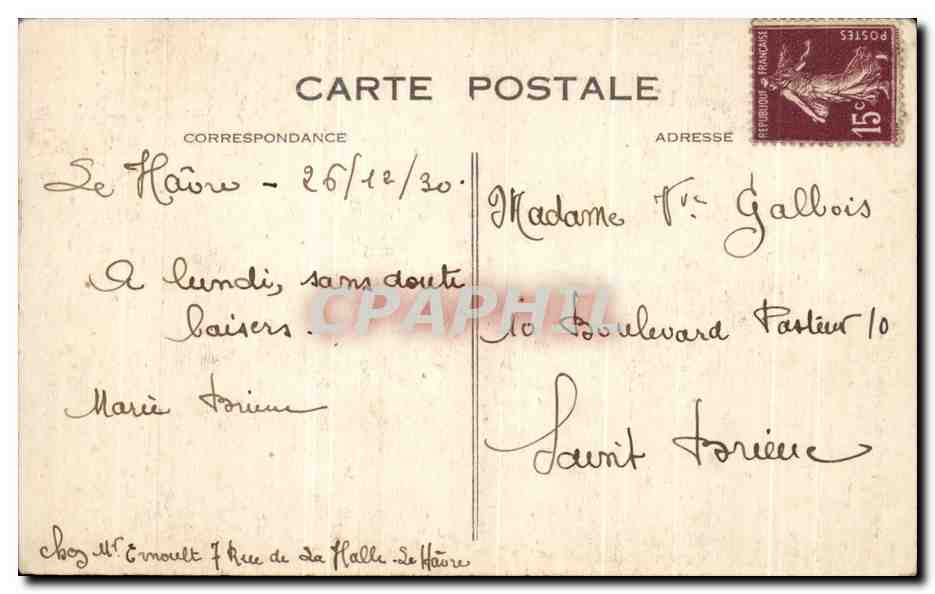 CARTE POSTALE
CORRESPONDANCE
ADRESSE
REPUBLIQUE FRANÇAISE
POSTES
15c
Le Hâvre - 26/12/30.
A lundi, sans doute
baisers.
Marie Brieuc
chez Mr Ernoult 7 Rue de La Halle - Le Hâvre
Madame Vve Galbois
10 Boulevard Pasteur 10
Saint Brieuc
CPAPHIL